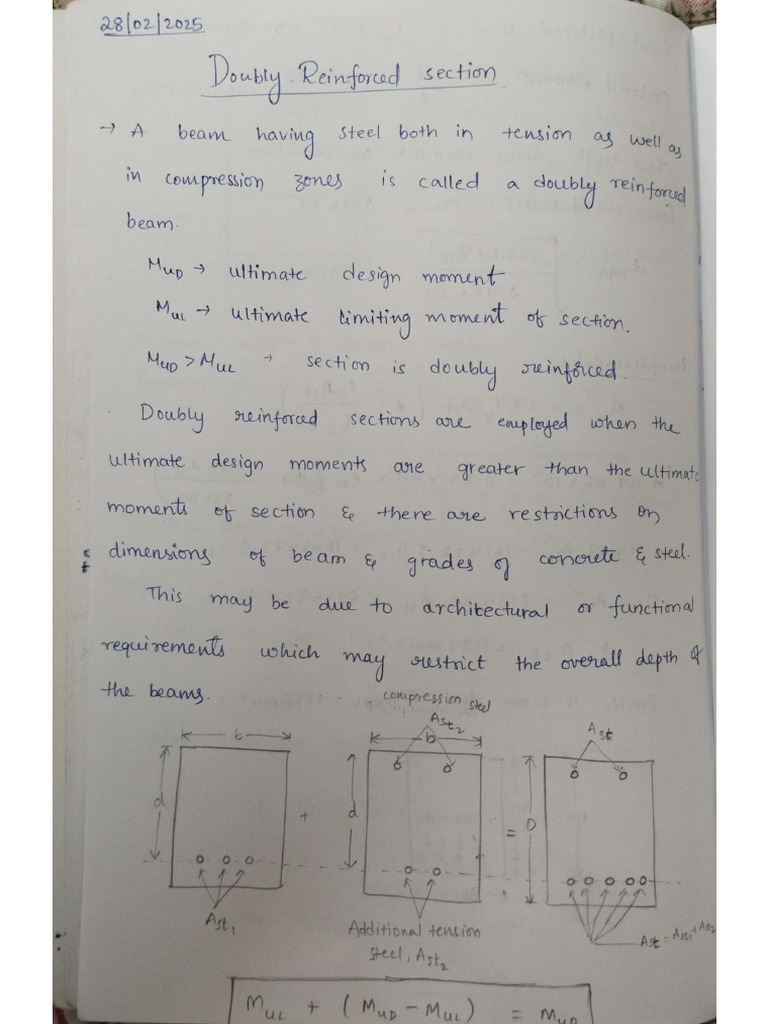 28/02/2025
Doubly Reinforced section
→ A beam having steel both in tension as well as
in compression zones is called a doubly reinforced
beam.
MuD → ultimate design moment
MuL → ultimate limiting moment of section.
MuD > MuL → section is doubly reinforced.
Doubly reinforced sections are employed when the
ultimate design moments are greater than the ultimate
moments of section & there are restrictions on
dimensions of beam & grades of concrete & steel.
This may be due to architectural or functional
requirements which may restrict the overall depth of
the beams.
compression steel
Ast2
Ast
b
b
d
d
D
+
=
Ast1
Additional tension
steel, Ast2
Ast = Ast1 + Ast2
MuL + (MuD - MuL) = MuD